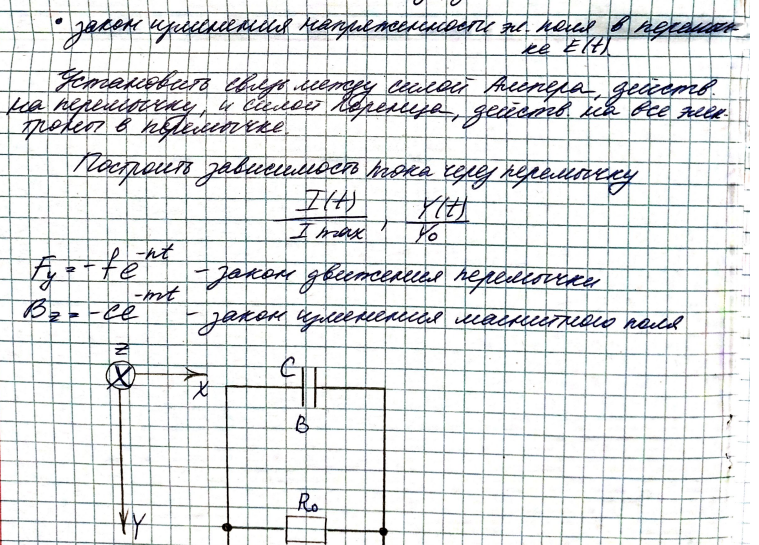 • закон изменения напряженности эл. поля в перемыч-
ке E(t).
Установить связь между силой Ампера, действ.
на перемычку, и силой Лоренца, действ. на все элек-
троны в перемычке.
Построить зависимость тока через перемычку
I(t)/I max, Y(t)/Y₀
Fy = -fe^-nt - закон движения перемычки
Bz = -ce^-mt - закон изменения магнитного поля
Z
X
C
B
R₀
Y